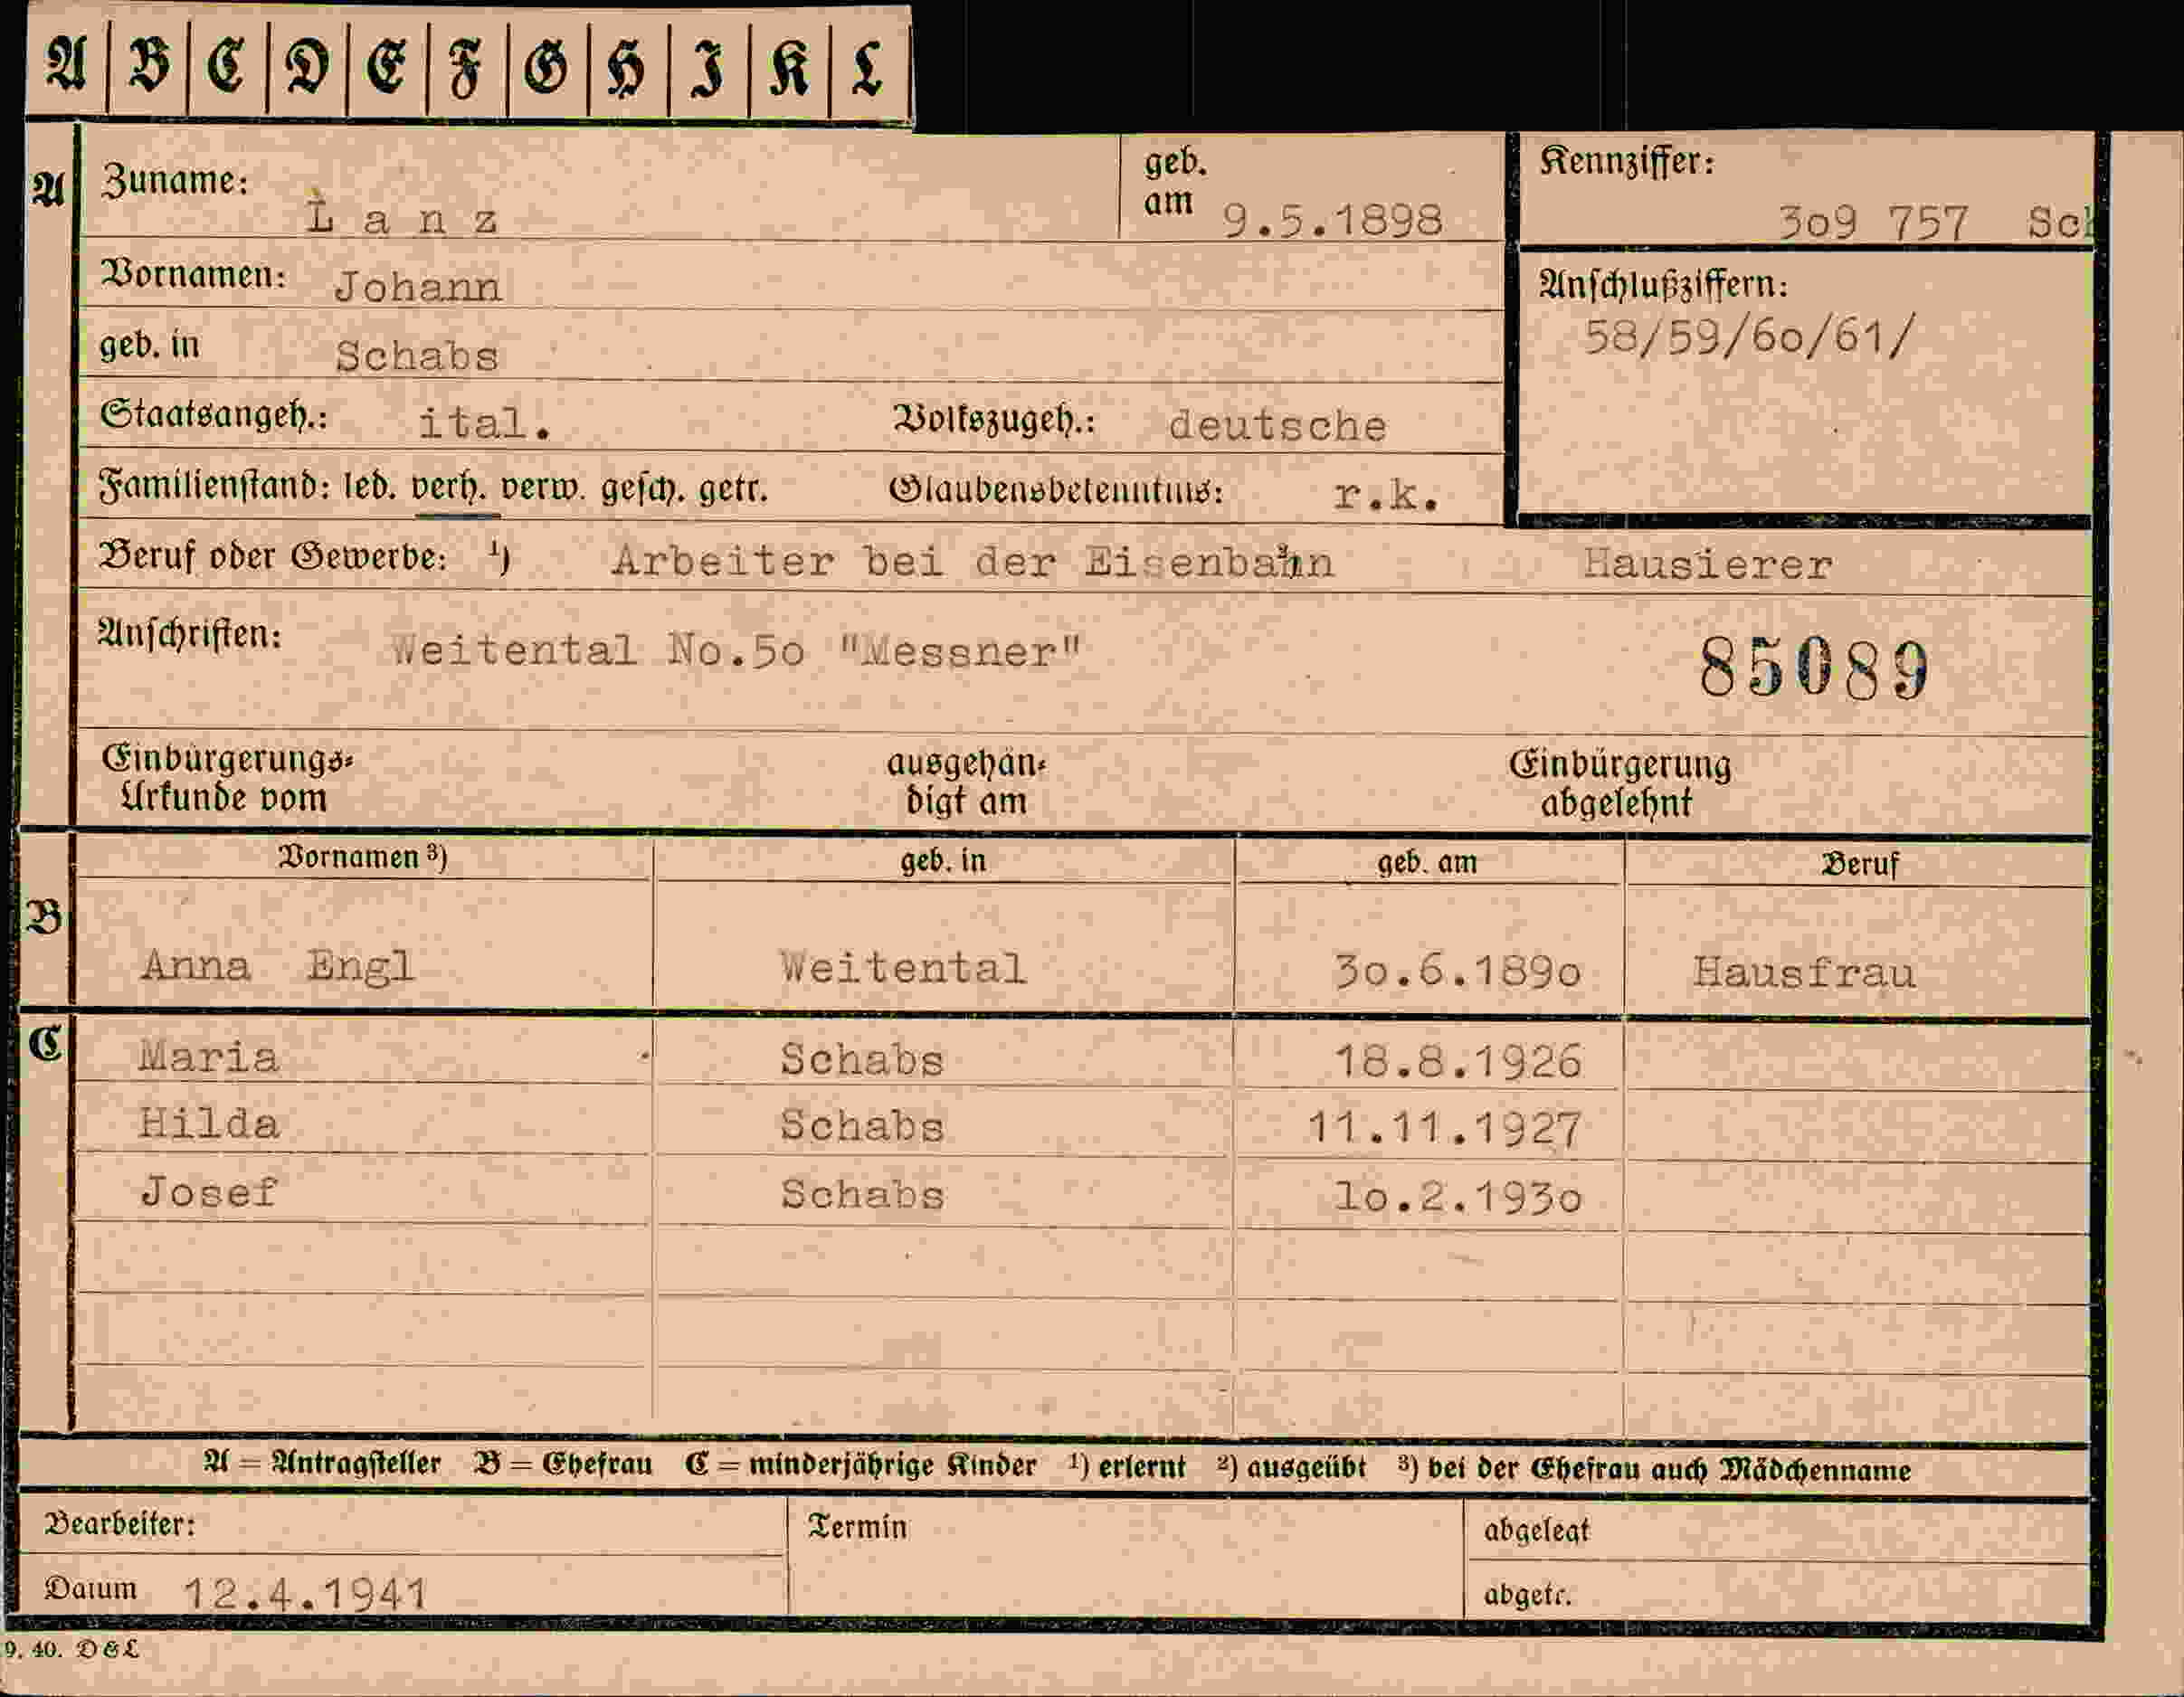 A B C D E F G H I K L
A Zuname: Lanz geb. am 9.5.1898 Kennziffer: 309 757 Sch
Vornamen: Johann Anschlußziffern:
58/59/60/61/
geb. in Schabs
Staatsangeh.: ital. Volkszugeh.: deutsche
Familienstand: led. verh. verw. gesch. getr. Glaubensbekenntnis: r.k.
Beruf oder Gewerbe: ¹) Arbeiter bei der Eisenbahn ²) Hausierer
Anschriften: Weitental No.50 "Messner" 85089
Einbürgerungs- ausgehän- Einbürgerung
Urkunde vom digt am abgelehnt
Vornamen ³) geb. in geb. am Beruf
B
Anna Engl Weitental 30.6.1890 Hausfrau
C Maria Schabs 18.8.1926
Hilda Schabs 11.11.1927
Josef Schabs 10.2.1930
A = Antragsteller B = Ehefrau C = minderjährige Kinder ¹) erlernt ²) ausgeübt ³) bei der Ehefrau auch Mädchenname
Bearbeiter: Termin abgelegt
Datum 12.4.1941 abgetr.
9. 40. D&L